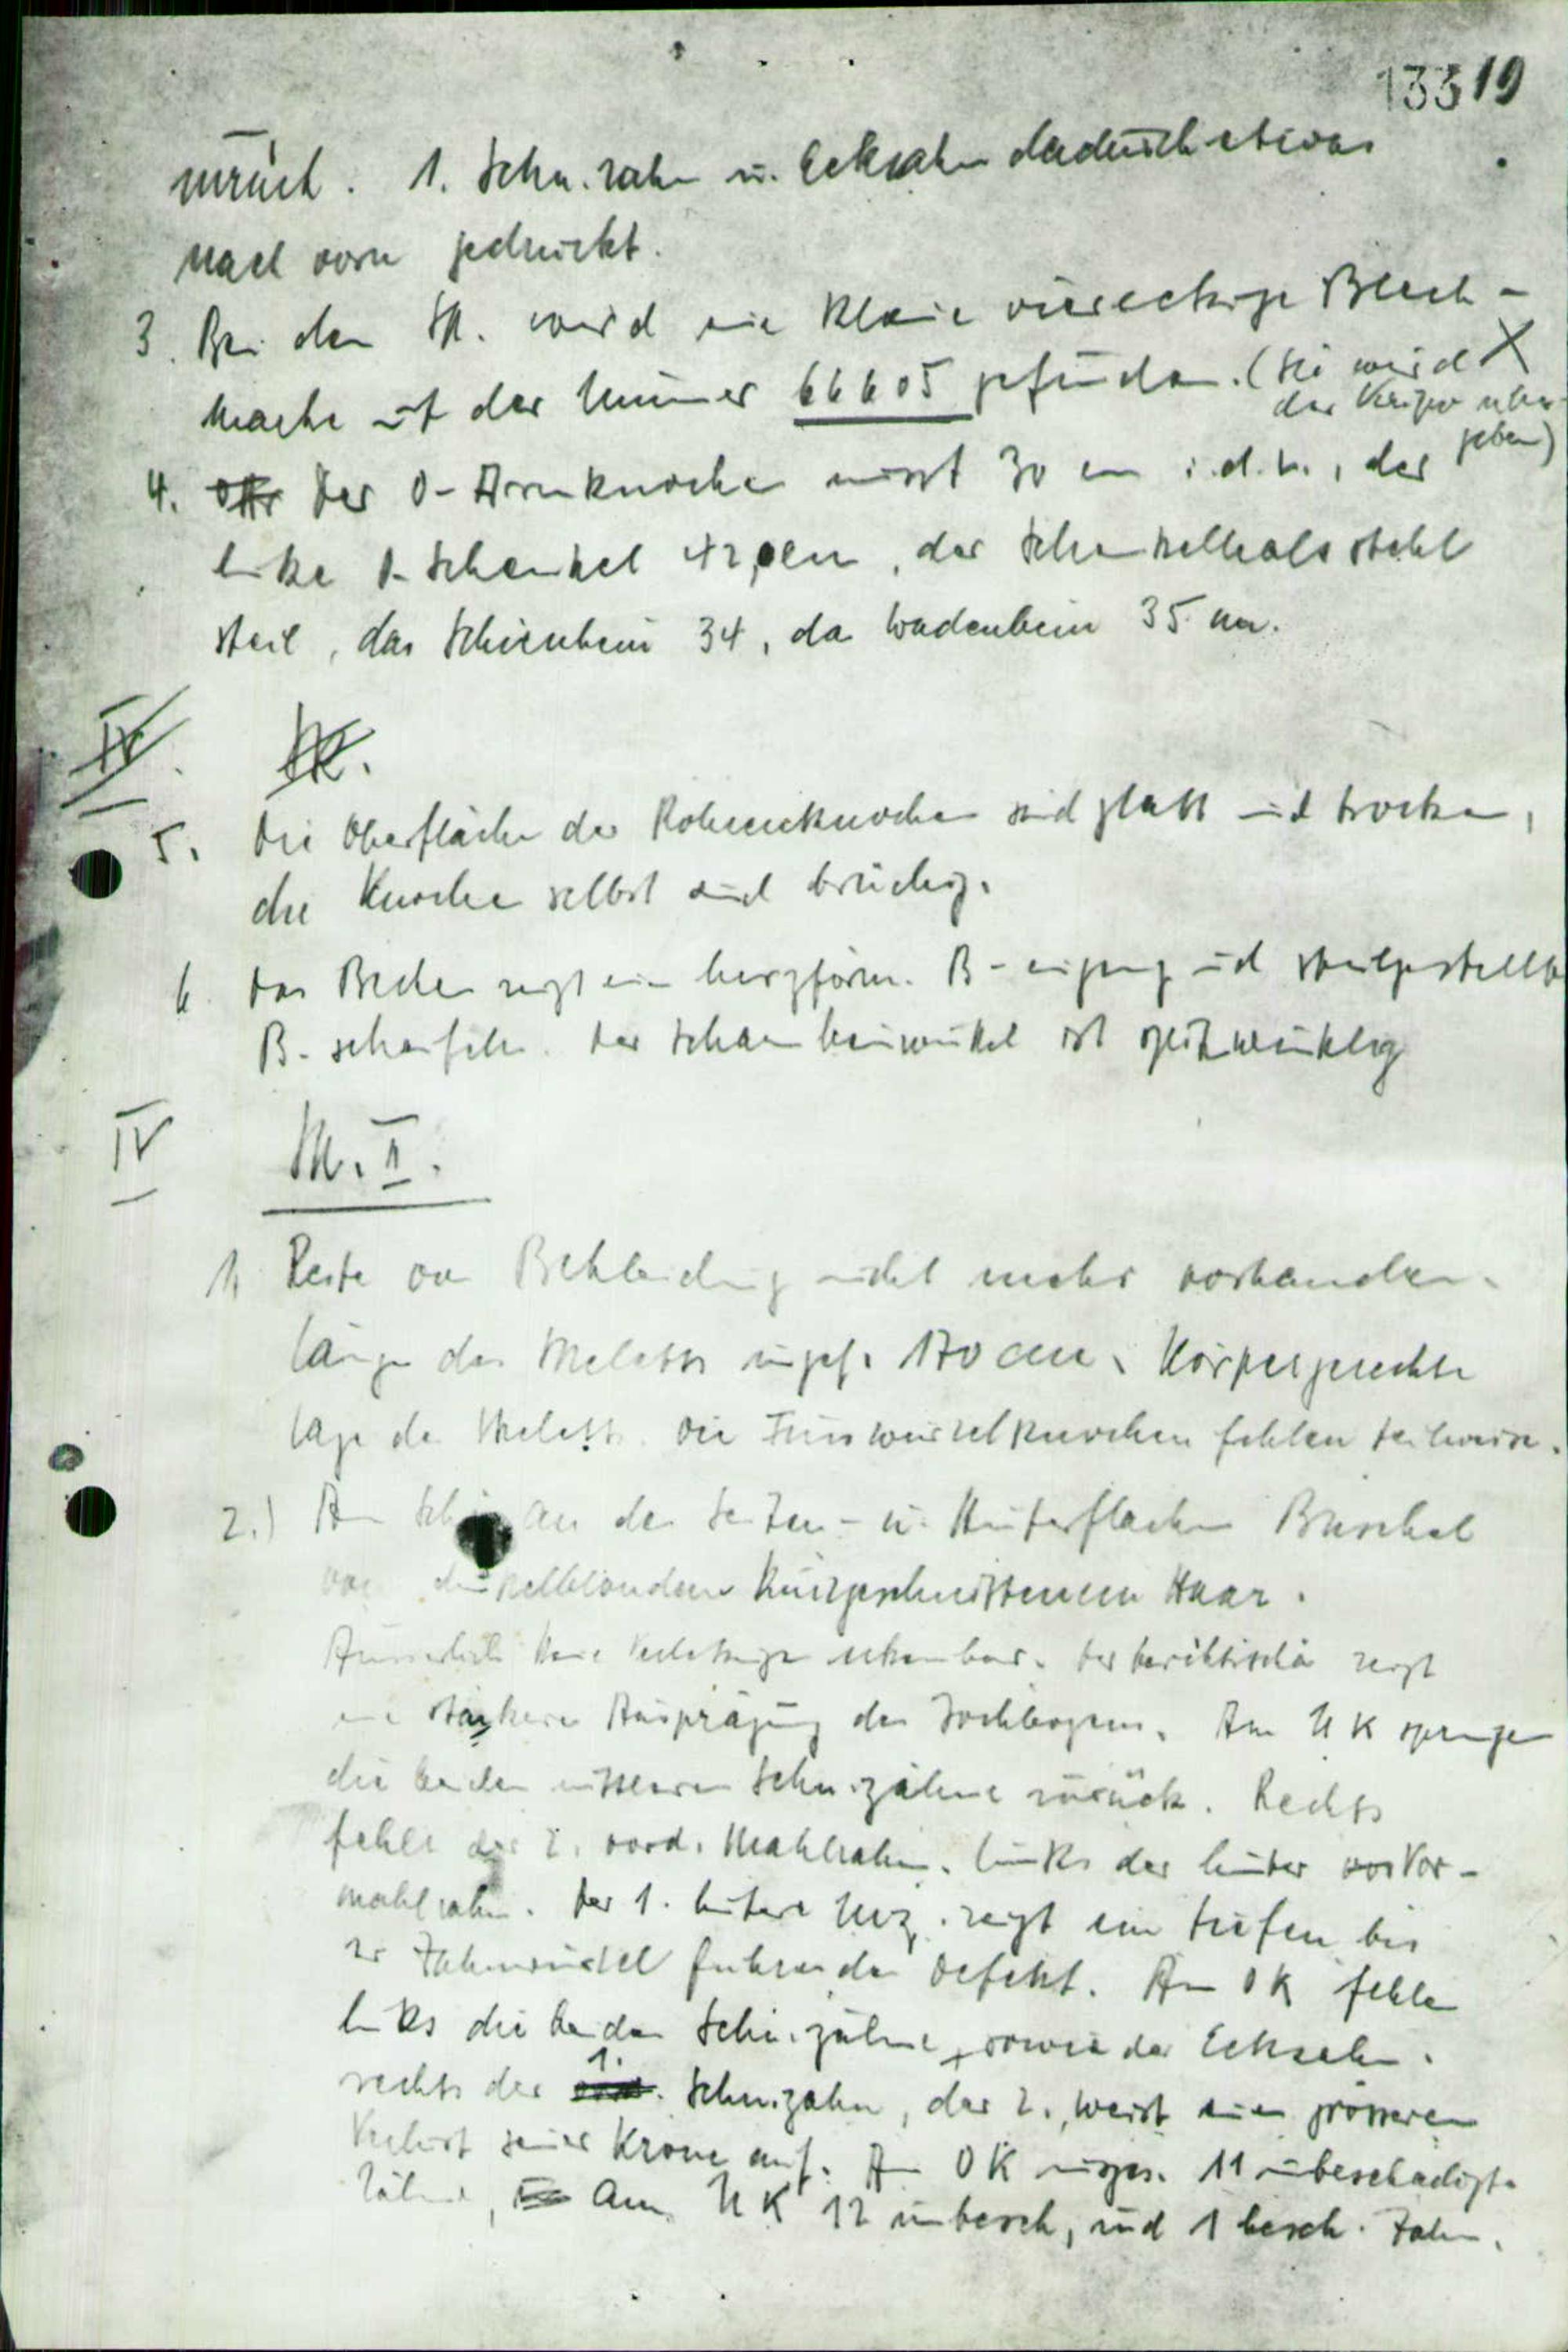 13319
zurück. 1. Schn.zahn u. Eckzahn dadurch etwas
nach vorn gedrückt.
3. Bei dem Sk. wird eine kleine viereckige Blech-
marke mit der Nummer 66605 gefunden. (Sie wird X
der Kripo über-
geben)
4. Der O-Armknochen misst 30 cm i.d.L., der
linke O-Schenkel 42, cm, der Schenkelhals steht
steil, das Schienbein 34, das Wadenbein 35 cm.
IV.
5. Die Oberfläche der Röhrenknochen sind glatt und trocken,
die Knochen selbst sind brüchig.
6 Das Becken zeigt ein herzförm. B-eingang und steilgestellte
B-schaufeln. Der Schambeinwinkel ist spitzwinklig
IV Sk. II.
1. Reste von Bekleidung nicht mehr vorhanden.
Länge des Skeletts ungef. 170 cm. Körpergerechte
Lage des Skeletts. Die Fusswurzelknochen fehlen teilweise.
2.) Am an den Seiten- u. Hinterflächen Büschel
von dunkelblondem kurzgeschnittenem Haar.
Äusserlich keine Verletzungen erkennbar. Der zeigt
eine stärkere Ausprägung des Jochbogens. Am UK springen
die beiden mittleren Schn.zähne zurück. Rechts
fehlt der 2. vord. Mahlzahn. Links der hinter Vor-
mahlzahn. Der 1. hintere zeigt ein tiefen bis
zur Zahnwurzel führenden Defekt. Am OK fehlen
links die beiden Schn.zähne, sowie der Eckzahn.
rechts der 1. Schn.zahn, der 2., weist einen grösseren
Verlust seiner Krone auf. Am OK insges. 11 unbeschädigte
Zähne, Am UK 12 unbesch, und 1 besch. Zahn.